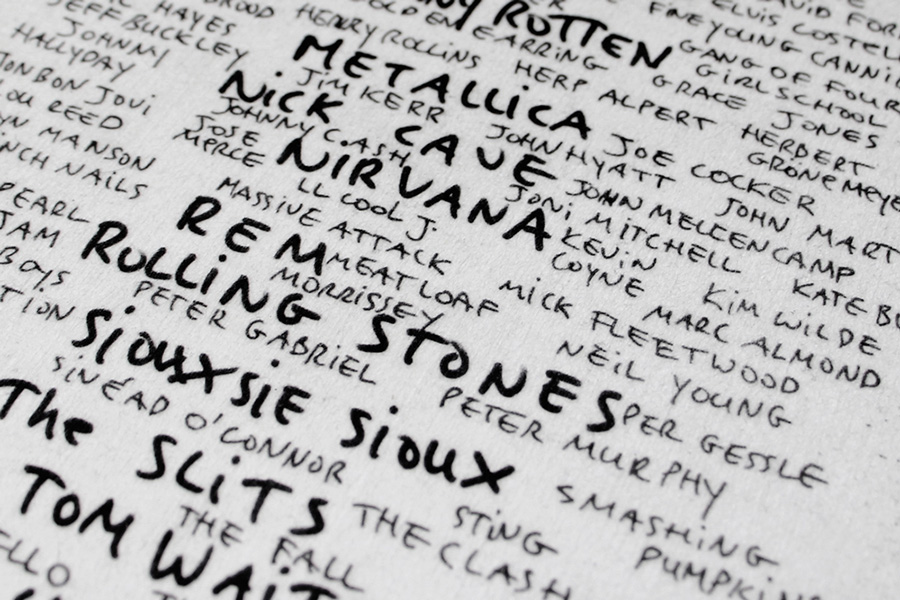 ROTTEN
HAYES
JEFF BUCKLEY
HENRY ROLLINS
EARRING
FINE YOUNG CANNI
ELVIS COSTELL
DAVID FOR
JOHNNY
HALLYDAY
METALLICA
HERP ALPERT
GRACE JONES
GANG OF FOUR
GIRLSCHOOL
JON BON JOVI
JIM KERR
NICK CAVE
JOHN HYATT
JOE COCKER
HERBERT
GRÖNEMEYE
LOU REED
JOHNNY CASH
JOSE
MERCE
NIRVANA
JOHN MELLENCAMP
JOHN MART
MANSON
NCH NAILS
LL COOL J.
JONI MITCHELL
MASSIVE ATTACK
REM
KEVIN
COYNE
KATE BU
PEARL
JAM
MEAT LOAF
MICK FLEETWOOD
KIM WILDE
MARC ALMOND
BOYS
ROLLING STONES
MORRISSEY
NEIL YOUNG
TION
PETER GABRIEL
PER GESSLE
SIOUXSIE SIOUX
PETER MURPHY
SINÉAD O'CONNOR
SMASHING
PUMPKIN
The SLITS
STING
THE CLASH
TOM WAIT
THE FALL
ELLO